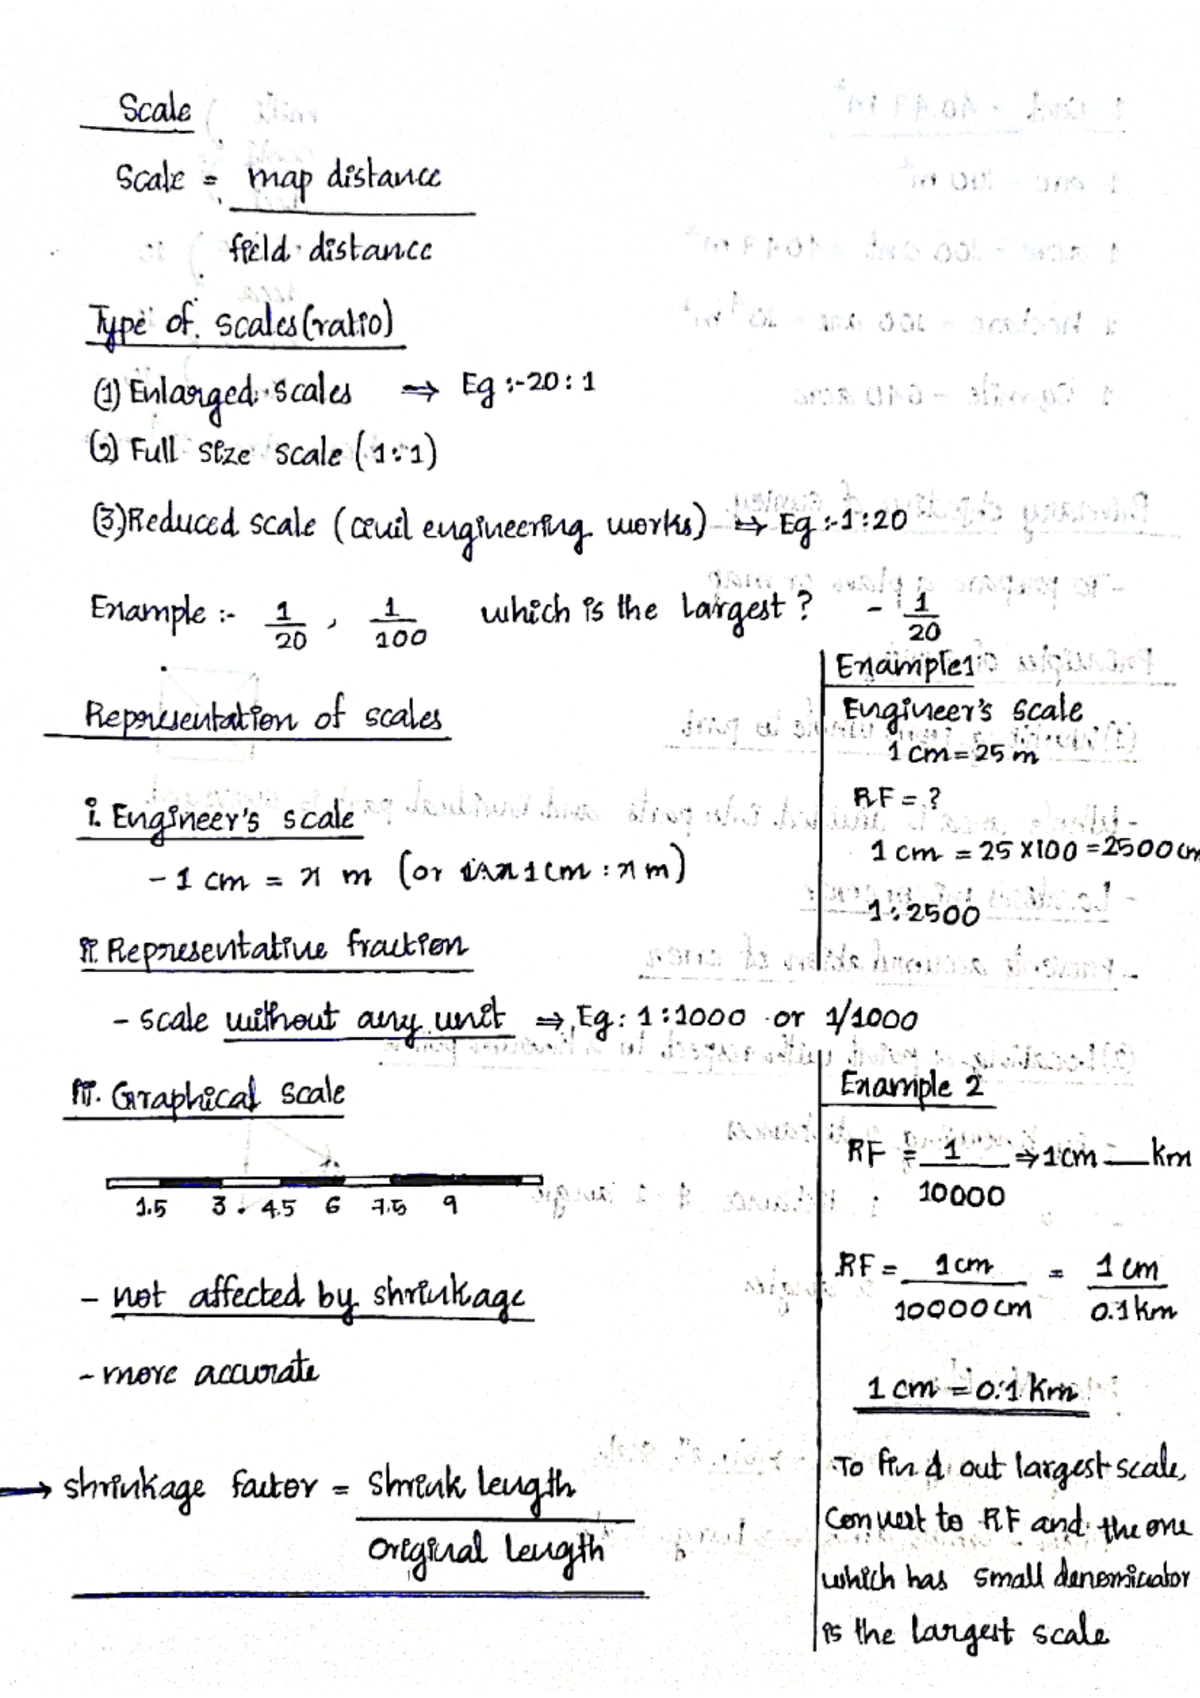 Scale
Scale = map distance
field distance
Type of scales(ratio)
(1) Enlarged scales ⇒ Eg :- 20 : 1
(2) Full size scale (1:1)
(3) Reduced scale (civil engineering works) ⇒ Eg :- 1:20
Example :- 1/20 , 1/100 which is the largest ? - 1/20
Representation of scales
i. Engineer's scale
- 1 cm = x m (or 1cm : x m)
ii. Representative fraction
- scale without any unit ⇒ Eg : 1:1000 or 1/1000
iii. Graphical scale
1.5 3 4.5 6 7.5 9
- not affected by shrinkage
- more accurate
→ shrinkage factor = Shrink length
Original length
Example 1
Engineer's scale
1 cm = 25 m
RF = ?
1 cm = 25 X100 = 2500 cm
1:2500
Example 2
RF = 1/10000 ⇒ 1cm __ km
RF = 1cm/10000cm = 1 cm/0.1 km
1 cm = 0.1 km
To find out largest scale,
convert to RF and the one
which has small denominator
is the largest scale